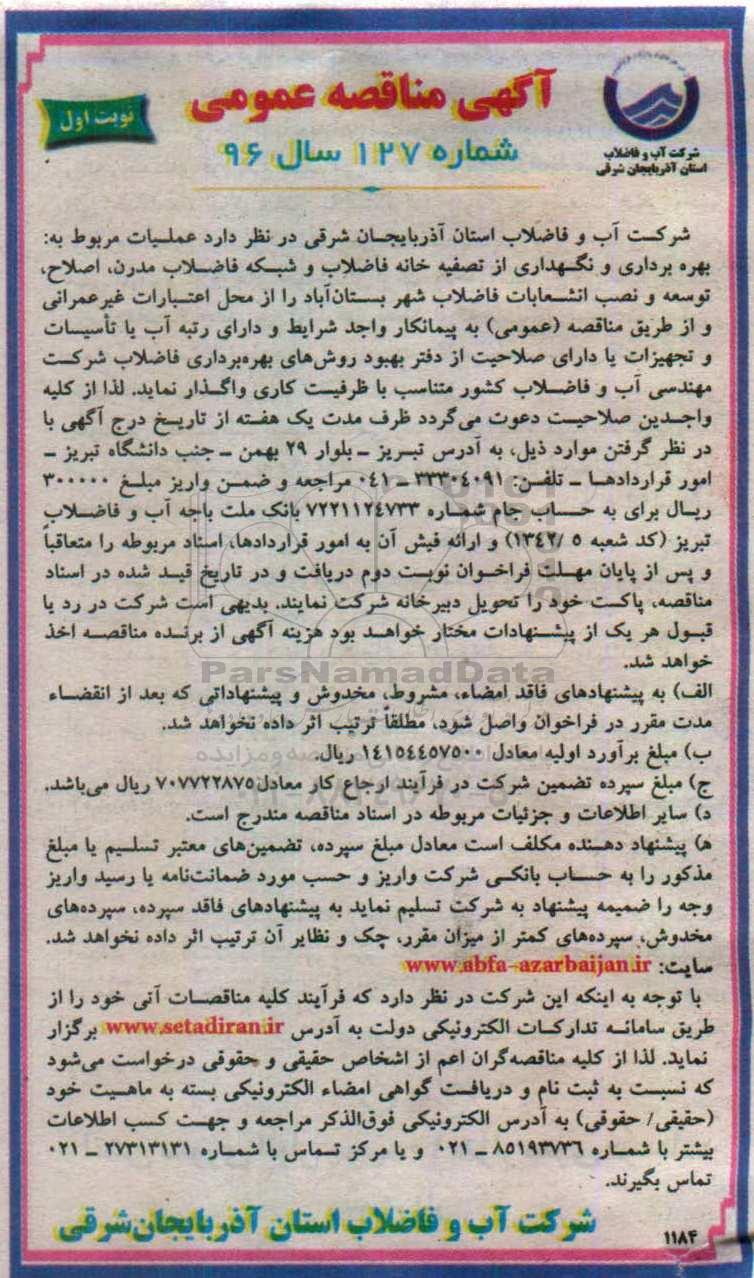 آگهی مناقصه عمومی
شماره ۱۲۷ سال ۹۶
نوبت اول
شرکت آب و فاضلاب
استان آذربایجان شرقی
شرکت آب و فاضلاب استان آذربایجان شرقی در نظر دارد عملیات مربوط به:
بهره برداری و نگهداری از تصفیه خانه فاضلاب و شبکه فاضلاب مدرن، اصلاح،
توسعه و نصب انشعابات فاضلاب شهر بستان‌آباد را از محل اعتبارات غیرعمرانی
و از طریق مناقصه (عمومی) به پیمانکار واجد شرایط و دارای رتبه آب یا تأسیسات
و تجهیزات یا دارای صلاحیت از دفتر بهبود روش‌های بهره‌برداری فاضلاب شرکت
مهندسی آب و فاضلاب کشور متناسب با ظرفیت کاری واگذار نماید. لذا از کلیه
واجدین صلاحیت دعوت می‌گردد ظرف مدت یک هفته از تاریخ درج آگهی با
در نظر گرفتن موارد ذیل، به آدرس تبریز ــ بلوار ۲۹ بهمن ــ جنب دانشگاه تبریز ــ
امور قراردادها ــ تلفن: ۳۳۳۰۴۰۹۱ ــ ۰۴۱ مراجعه و ضمن واریز مبلغ ۳۰۰۰۰۰
ریال برای به حساب جام شماره ۷۲۲۱۱۲۴۷۳۳ بانک ملت باجه آب و فاضلاب
تبریز (کد شعبه ۵ /۱۳۴۲) و ارائه فیش آن به امور قراردادها، اسناد مربوطه را متعاقباً
و پس از پایان مهلت فراخوان نوبت دوم دریافت و در تاریخ قید شده در اسناد
مناقصه، پاکت خود را تحویل دبیرخانه شرکت نمایند. بدیهی است شرکت در رد یا
قبول هر یک از پیشنهادات مختار خواهد بود هزینه آگهی از برنده مناقصه اخذ
خواهد شد.
ParsNamadData
الف) به پیشنهادهای فاقد امضاء، مشروط، مخدوش و پیشنهاداتی که بعد از انقضاء
مدت مقرر در فراخوان واصل شود، مطلقاً ترتیب اثر داده نخواهد شد.
ب) مبلغ برآورد اولیه معادل ۱۴۱۵۴۴۵۷۵۰۰ ریال.
ج) مبلغ سپرده تضمین شرکت در فرآیند ارجاع کار معادل۷۰۷۷۲۲۸۷۵ ریال می‌باشد.
د) سایر اطلاعات و جزئیات مربوطه در اسناد مناقصه مندرج است.
ه) پیشنهاد دهنده مکلف است معادل مبلغ سپرده، تضمین‌های معتبر تسلیم یا مبلغ
مذکور را به حساب بانکی شرکت واریز و حسب مورد ضمانت‌نامه یا رسید واریز
وجه را ضمیمه پیشنهاد به شرکت تسلیم نماید به پیشنهادهای فاقد سپرده، سپرده‌های
مخدوش، سپرده‌های کمتر از میزان مقرر، چک و نظایر آن ترتیب اثر داده نخواهد شد.
سایت: www.abfa-azarbaijan.ir
با توجه به اینکه این شرکت در نظر دارد که فرآیند کلیه مناقصات آتی خود را از
طریق سامانه تدارکات الکترونیکی دولت به آدرس www.setadiran.ir برگزار
نماید. لذا از کلیه مناقصه‌گران اعم از اشخاص حقیقی و حقوقی درخواست می‌شود
که نسبت به ثبت نام و دریافت گواهی امضاء الکترونیکی بسته به ماهیت خود
(حقیقی/ حقوقی) به آدرس الکترونیکی فوق‌الذکر مراجعه و جهت کسب اطلاعات
بیشتر با شماره ۸۵۱۹۳۷۳۶ ــ ۰۲۱ و یا مرکز تماس با شماره ۲۷۳۱۳۱۳۱ ــ ۰۲۱
تماس بگیرند.
شرکت آب و فاضلاب استان آذربایجان‌شرقی
۱۱۸۴